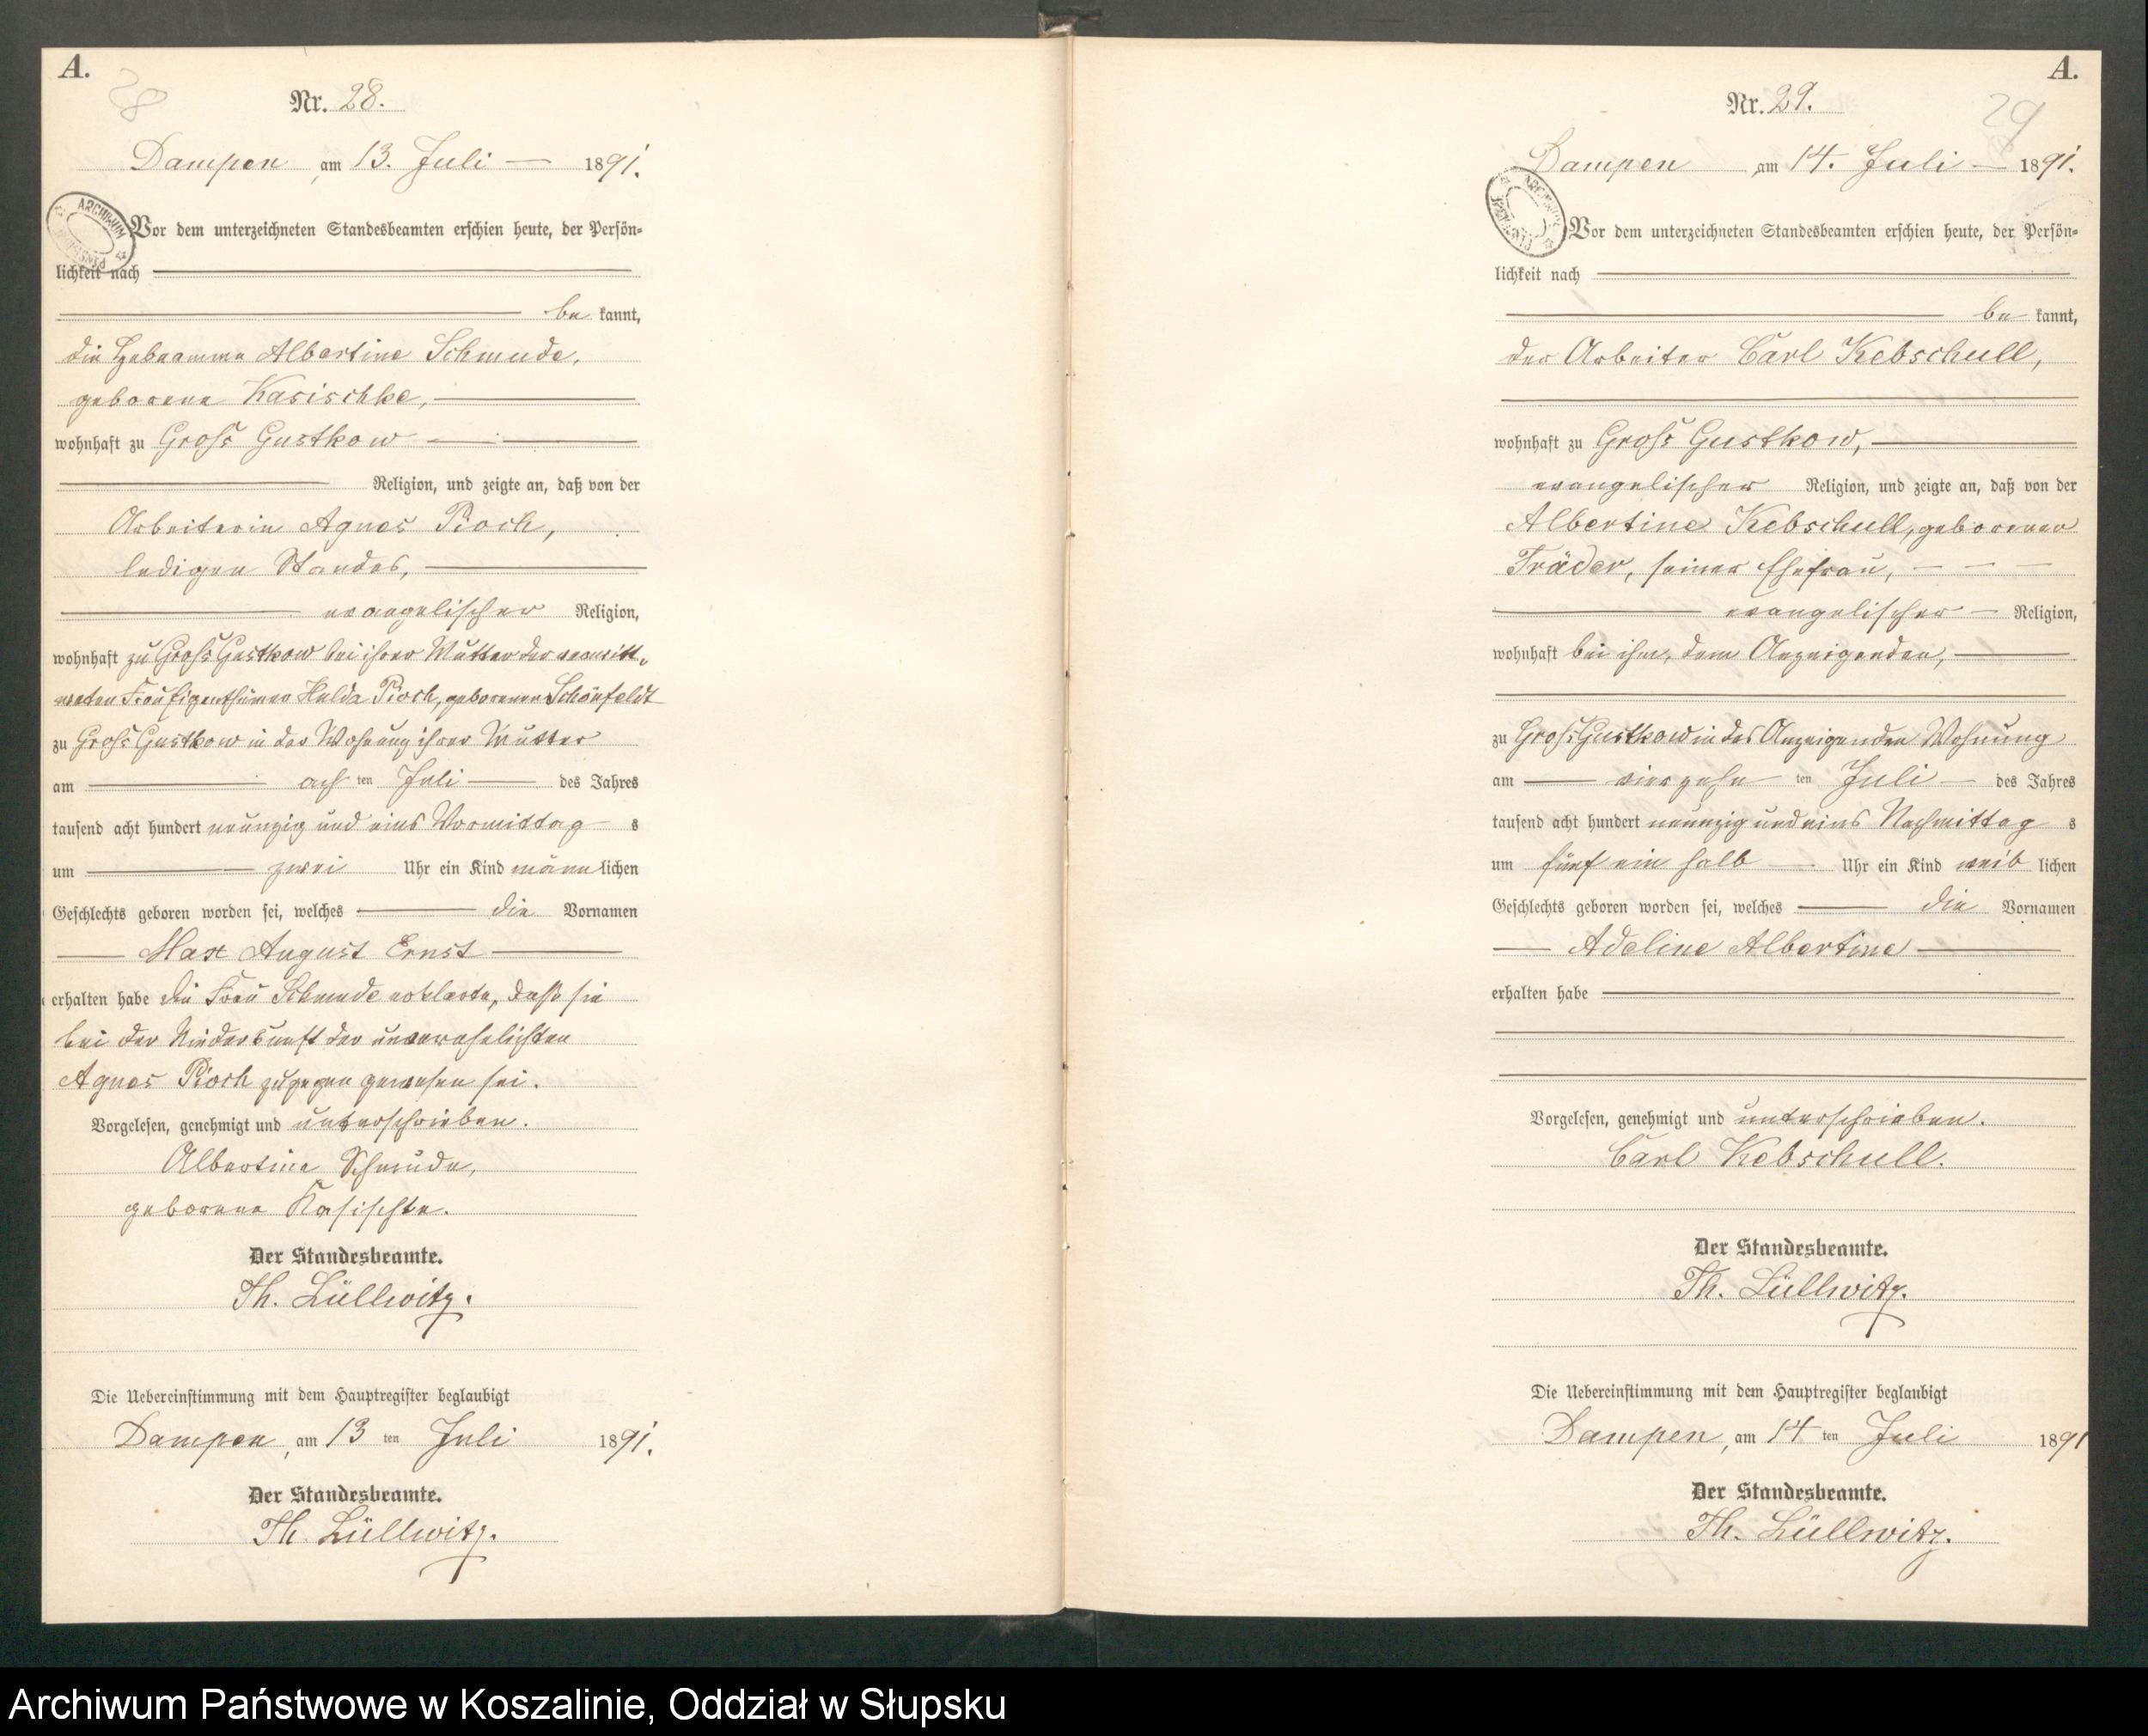 A.
28
Nr. 28.
Dampen, am 13. Juli — 1891.
ARCHIWUM
Vor dem unterzeichneten Standesbeamten erschien heute, der Persön-
lichkeit nach
be kannt,
die Hebeamme Albertine Schmude,
geborene Kasischke,
wohnhaft zu Groß Gustkow
Religion, und zeigte an, daß von der
Arbeiterin Agnes Pioch,
ledigen Standes,
evangelischer Religion,
wohnhaft zu Groß Gustkow bei ihrer Mutter der verwitt-
weten Frau Eigenthümer Hulda Pioch, geborenen Schönfeldt
zu Groß Gustkow in der Wohnung ihrer Mutter
am acht ten Juli des Jahres
tausend acht hundert neunzig und eins Vormittag s
um zwei Uhr ein Kind männ lichen
Geschlechts geboren worden sei, welches die Vornamen
Max August Ernst
erhalten habe die Frau Schmude erklärte, daß sie
bei der Niederkunft der unverehelichten
Agnes Pioch zugegen gewesen sei.
Vorgelesen, genehmigt und unterschrieben.
Albertine Schmude,
geborene Kasischke.
Der Standesbeamte.
Th. Lüllwitz.
Die Uebereinstimmung mit dem Hauptregister beglaubigt
Dampen, am 13 ten Juli 1891.
Der Standesbeamte.
Th. Lüllwitz.
A.
29
Nr. 29.
Dampen am 14. Juli — 1891.
Vor dem unterzeichneten Standesbeamten erschien heute, der Persön-
lichkeit nach
be kannt,
der Arbeiter Carl Kebschull,
wohnhaft zu Groß Gustkow,
evangelischer Religion, und zeigte an, daß von der
Albertine Kebschull, geborenen
Träder, seiner Ehefrau,
evangelischer Religion,
wohnhaft bei ihm, dem Anzeigenden,
zu Groß Gustkow in des Anzeigenden Wohnung
am vierzehn ten Juli des Jahres
tausend acht hundert neunzig und eins Nachmittag s
um fünf ein halb Uhr ein Kind weib lichen
Geschlechts geboren worden sei, welches die Vornamen
Adeline Albertine
erhalten habe
Vorgelesen, genehmigt und unterschrieben.
Carl Kebschull.
Der Standesbeamte.
Th. Lüllwitz.
Die Uebereinstimmung mit dem Hauptregister beglaubigt
Dampen, am 14 ten Juli 1891
Der Standesbeamte.
Th. Lüllwitz.
Archiwum Państwowe w Koszalinie, Oddział w Słupsku